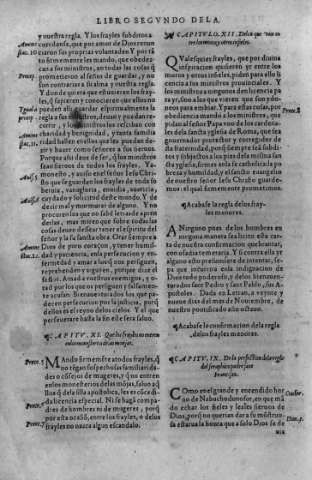 LIBRO SEGVNDO DELA
y nuestra regla. Y los frayles subditos a
cuerdanse, que por amor de Dios renun
ciaron sus proprias voluntades Y por tã
to firmemente les mando, que obedez-
can a sus ministros, en todas las cosas q̃
prometieron al señor de guardar, y no
son contrarias a su alma y nuestra regla.
Y do quiera que estuuieren los frayles,
rituales
regla
Y los ministros los reciban con
charidad y benignidad, y tanta familia
ridad hallen en ellos que les puedan de-
zir y hazer como señores a sus sieruos.
Porque assi deue de ser, q̃ los ministros
sean sieruos de todos los frayles. Ya-
monesto, y auiso en el Señor Iesu Chris-
sto que se guarden los frayles de toda so
beruia, vanagloria, embidia, auaricia,
cuydado y solicitud deste mundo. Y de
dezir mal y murmurar de alguno. Y no
procuren los que no sabē letras de apren
derlas, mas miren que sobre todas las
cosas deuen dessear tener el espiritu del
señor y la su sancta obra. Orar siempre a
Dios de puro coraçon, y tener humil-
dad y paciencia, en la persecucion y en-
fermedad y amar a los q̃ nos persiguen,
reprehenden y arguyen, porque dize el
señor. Amad a vuestros enemigos, y o-
rad por los que os persiguen y falsamen-
te acusan. Bienauenturados los que pa-
decen persecucion por la justicia, porq̃
dellos es el reyno de los cielos. Y el que
perseuerare hasta la fin este sera saluo.
CAPITV. XI. Que los frayles no entren
en los monesterios de monjas.
MAndo firmemente a todos los frayles, q̃
no tengan sospechosas familiarida-
des o consejos de mugeres, y q̃ no en-
tren en monesterios de mõjas, saluo a q̃
llos q̃ de la silla apostolica, les es concedi
da licencia especial. Ni se hagã compa-
dres de hombres ni de mugeres, porq̃
con esta ocasion, entre los frayles, o delos
frayles no nazca algun escandalo.
CAPITVLO. XII. Delos que van en
tre los moros y otros infieles.
QValesquier frayles, que por diuina
inspiracion quisieren yr entre los
moros y otros infieles, pidan para ello li
cencia a sus ministros prouinciales. Y
los ministros a ninguno den licencia pa
ra yr, sino a los que vieren ser ydoneos
para embiar. Y para estas cosas, por obe-
diencia mando a los ministros, que
pidan al señor Papa vno de los cardena-
les dela sancta yglesia de Roma, que sea
gouernador protector y corregidor de
esta fraternidad, porque siempre seã sub
ditos y subjectos a los pies dela misma sãn
cta yglesia, firmes en la fe catholica la po
breza y humildad, y el sancto euangelio
de nuestro señor Iesu Christo guarde-
mos: el qual firmemente prometimos.
¶ Acabase la regla delos frayles
menores.
A Ninguno pues delos hombres en
ninguna manera sea licito esta car
ta de nuestra confirmacion quebrantar,
o con osadia temeraria. Y si contra ella yr
alguno osare presumidamente de intento, se
pa que incurrira enla indignacion de
Dios todo poderoso, y delos bienauen-
turados sant Pedro y sant Pablo, sus A-
postoles. Dada en Letran, a veynte y
nueue dias del mes de Nouiembre, de
nuestro pontificado año octauo.
¶Acabase la confirmacion dela regla
delos frayles menores.
¶CAPITV. IX. De la perfection dela regla
del seraphico padre sant
Francisco.
COmo en el grande y encendido hor
no de Nabuchodonosor, en que mã
do echar los fieles y leales sieruos de
Dios, porq̃ no querian dar a su monstruo
sa estatua la honra que a solo Dios se de